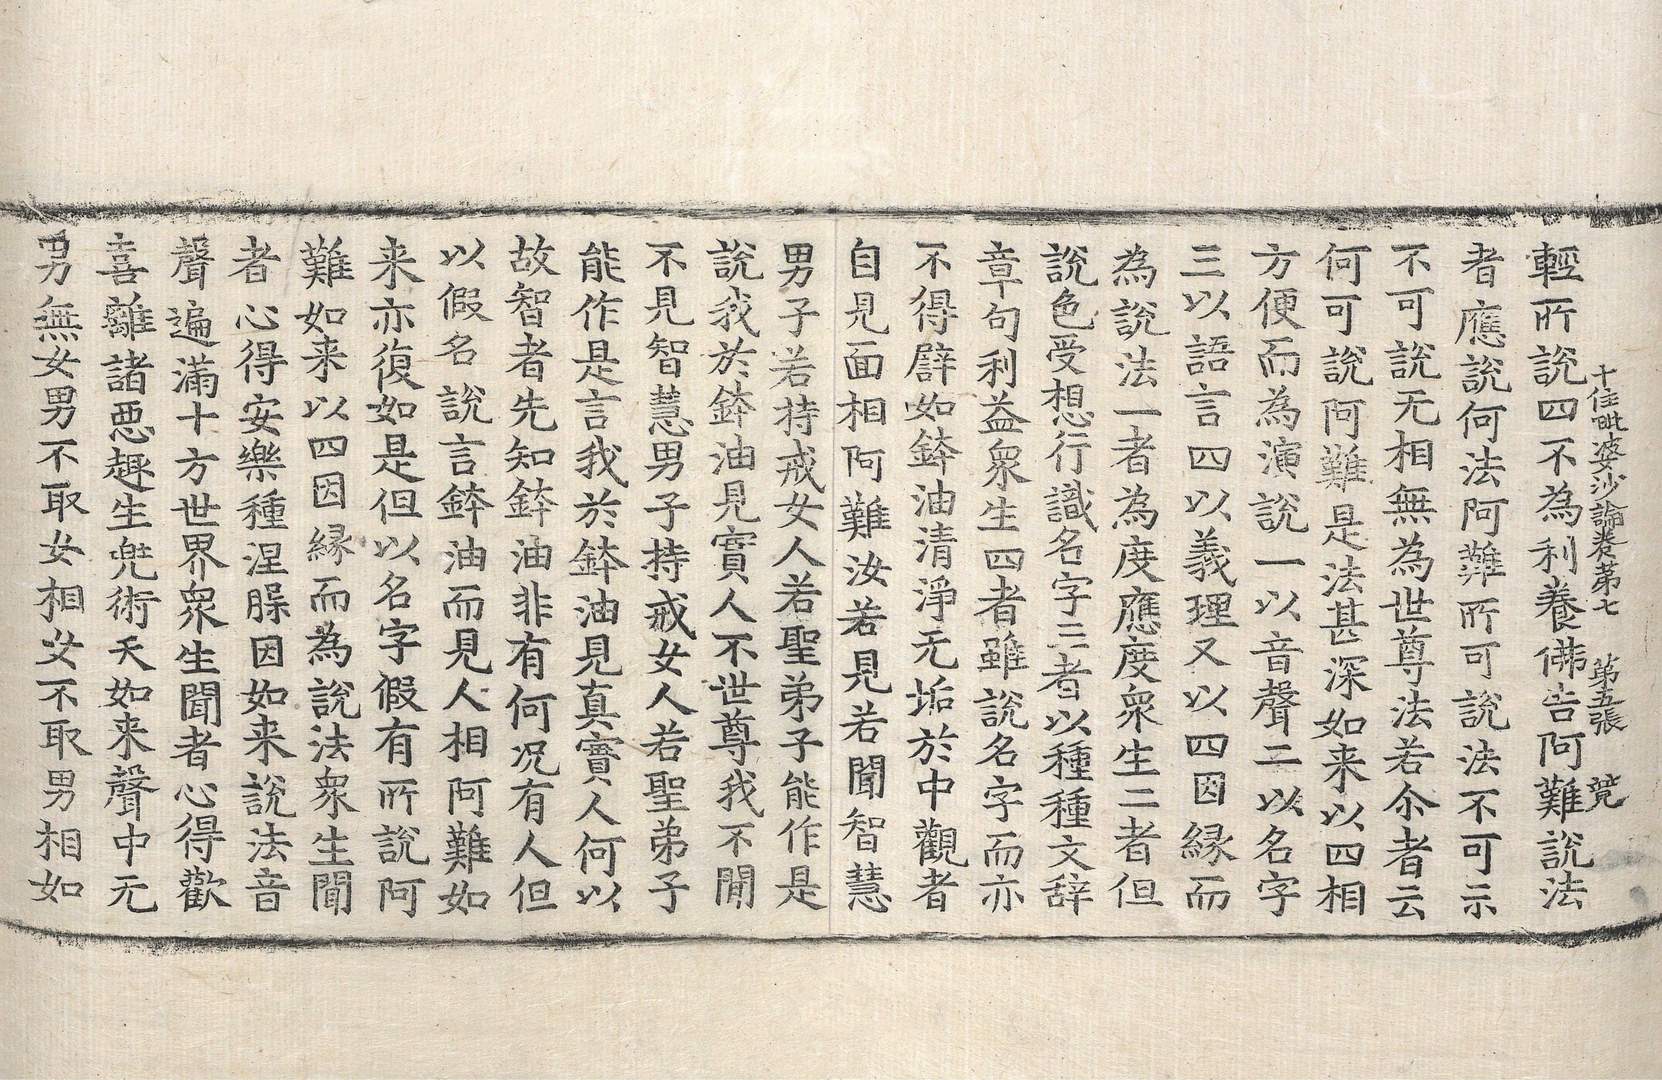 十住毗婆沙論卷第七　第五張　覚
輕所說四不為利養佛告阿難說法
者應說何法阿難所可說法不可示
不可說无相無為世尊法若尒者云
何可說阿難是法甚深如来以四相
方便而為演說一以音聲二以名字
三以語言四以義理又以四因縁而
為說法一者為度應度衆生二者但
說色受想行識名字三者以種種文辞
章句利益衆生四者雖說名字而亦
不得譬如鉢油清淨无垢於中觀者
自見面相阿難汝若見若聞智慧
男子若持戒女人若聖弟子能作是
說我於鉢油見實人不世尊我不聞
不見智慧男子持戒女人若聖弟子
能作是言我於鉢油見真實人何以
故智者先知鉢油非有何况有人但
以假名說言鉢油而見人相阿難如
来亦復如是但以名字假有所說阿
難如来以四因縁而為說法衆生聞
者心得安樂種涅槃因如来說法音
聲遍滿十方世界衆生聞者心得歡
喜離諸惡趣生兜術天如来聲中无
男無女男不取女相女不取男相如